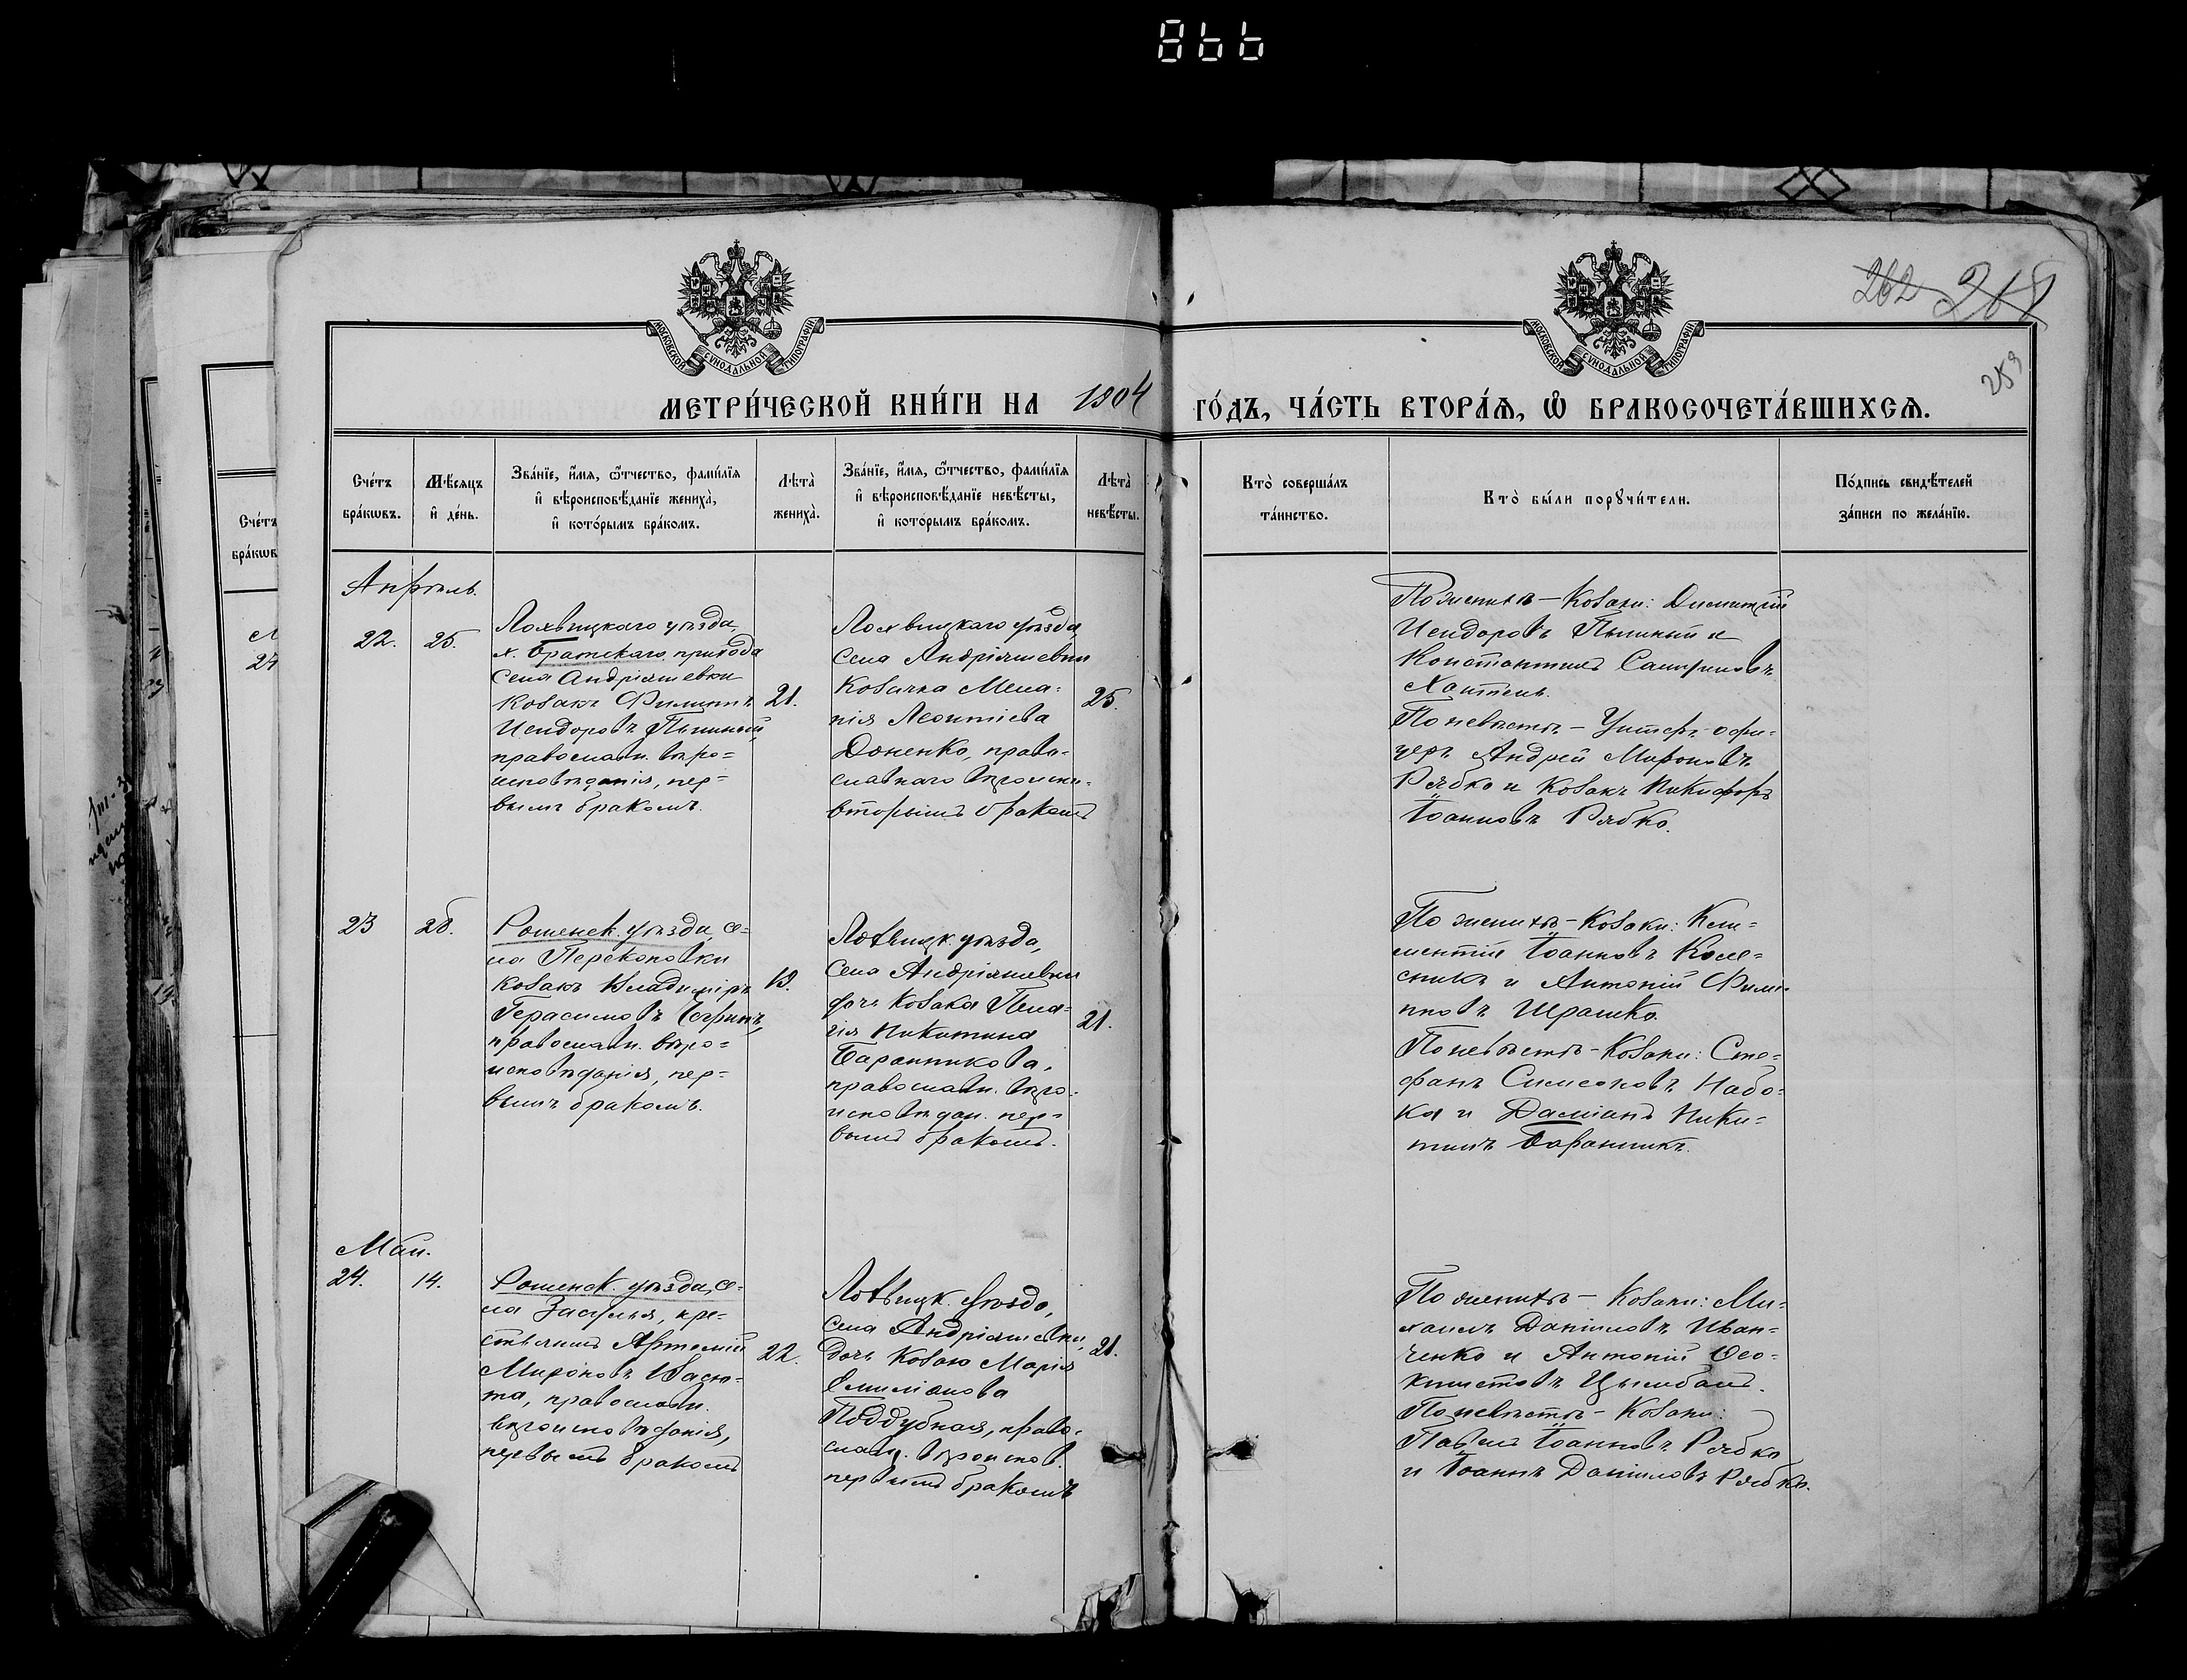 866
262 268
259
МОСКОВСКОЙ СУНОДАЛЬНОЙ ТИПОГРАФІИ
МОСКОВСКОЙ СУНОДАЛЬНОЙ ТИПОГРАФІИ
МЕТРИ́ЧЕСКОЙ КНИ́ГИ НА 1904 ГО́ДЪ, ЧА́СТЬ ВТОРА́Я, Ѽ БРАКОСОЧЕТА́ВШИХСЯ.
Сче́тъ
бра́кѡвъ.
Мѣ́сяцъ
и҆ де́нь.
Зва́нїе, и҆́мя, ѻ҆́тчество, фами́лїя
и҆ вѣроисповѣ́данїе жениха̀,
и҆ кото́рымъ бра́комъ.
Лѣта̀
жениха̀.
Зва́нїе, и҆́мя, ѻ҆́тчество, фами́лїя
и҆ вѣроисповѣ́данїе невѣ́сты,
и҆ кото́рымъ бра́комъ.
Лѣта̀
невѣ́сты.
Кто̀ соверша́лъ
та́инство.
Кто̀ бы́ли порꙋчи́тели.
По́дпись свидѣ́телей
за́писи по жела́нїю.
Сче́тъ
бра́кѡв
Апрѣль.
22.
25.
Лохвицкаго уѣзда,
х. Братскаго прихода
села Андріяшевки
козакъ Филиппъ
Исидоровъ Пышный,
православн. вѣро=
исповѣданія, пер=
вымъ бракомъ.
21.
Лохвицкаго уѣзда
села Андріяшевки
козачка Мела=
нія Леонтіева
Доненко, право-
славнаго вѣроиспов.
вторымъ бракомъ
25.
По женихѣ — козаки: Димитрій
Исидоровъ Пышный и
Константинъ
По невѣстѣ — Унтеръ-офи-
церъ Андрей Мироновъ
Рябко и козакъ Никифоръ
Іоанновъ Рябко.
23
28.
Роменск. уѣзда, се=
ла Перекоповки
козакъ Владиміръ
Герасимовъ
православн. вѣро=
исповѣданія, пер=
вымъ бракомъ.
19.
Лохвицк. уѣзда,
села Андріяшевки
дочь козака Пела=
гія Никитина
Баранникова,
православн. вѣро-
исповѣдан. пер=
вымъ бракомъ.
21.
По женихѣ — козаки: Кли=
ментій Іоанновъ Коле=
сникъ и Антоній Филип-
повъ Ирашко.
По невѣстѣ — козаки: Сте=
фанъ Симеоновъ Набо=
ка и Даміанъ Ники=
тинъ Баранникъ.
Май.
24.
14.
Роменск. уѣзда, се-
ла Засулья, кре=
стьянинъ Артемій
Мироновъ Васю=
та, православн.
вѣроисповѣданія,
первымъ бракомъ
22.
Лохвицк. уѣзда,
села Андріяшевки,
дочь козака Марія
Емиліанова
Поддубная, право-
славн. вѣроисповѣд.
первымъ бракомъ
21.
По женихѣ — козаки: Ми=
хаилъ Даніиловъ Иван=
ченко и Антоній Ѳео=
ктистовъ Цымбалъ.
По невѣстѣ — козаки:
Павелъ Іоанновъ Рябко
и Іоаннъ Даніиловъ Рябко.